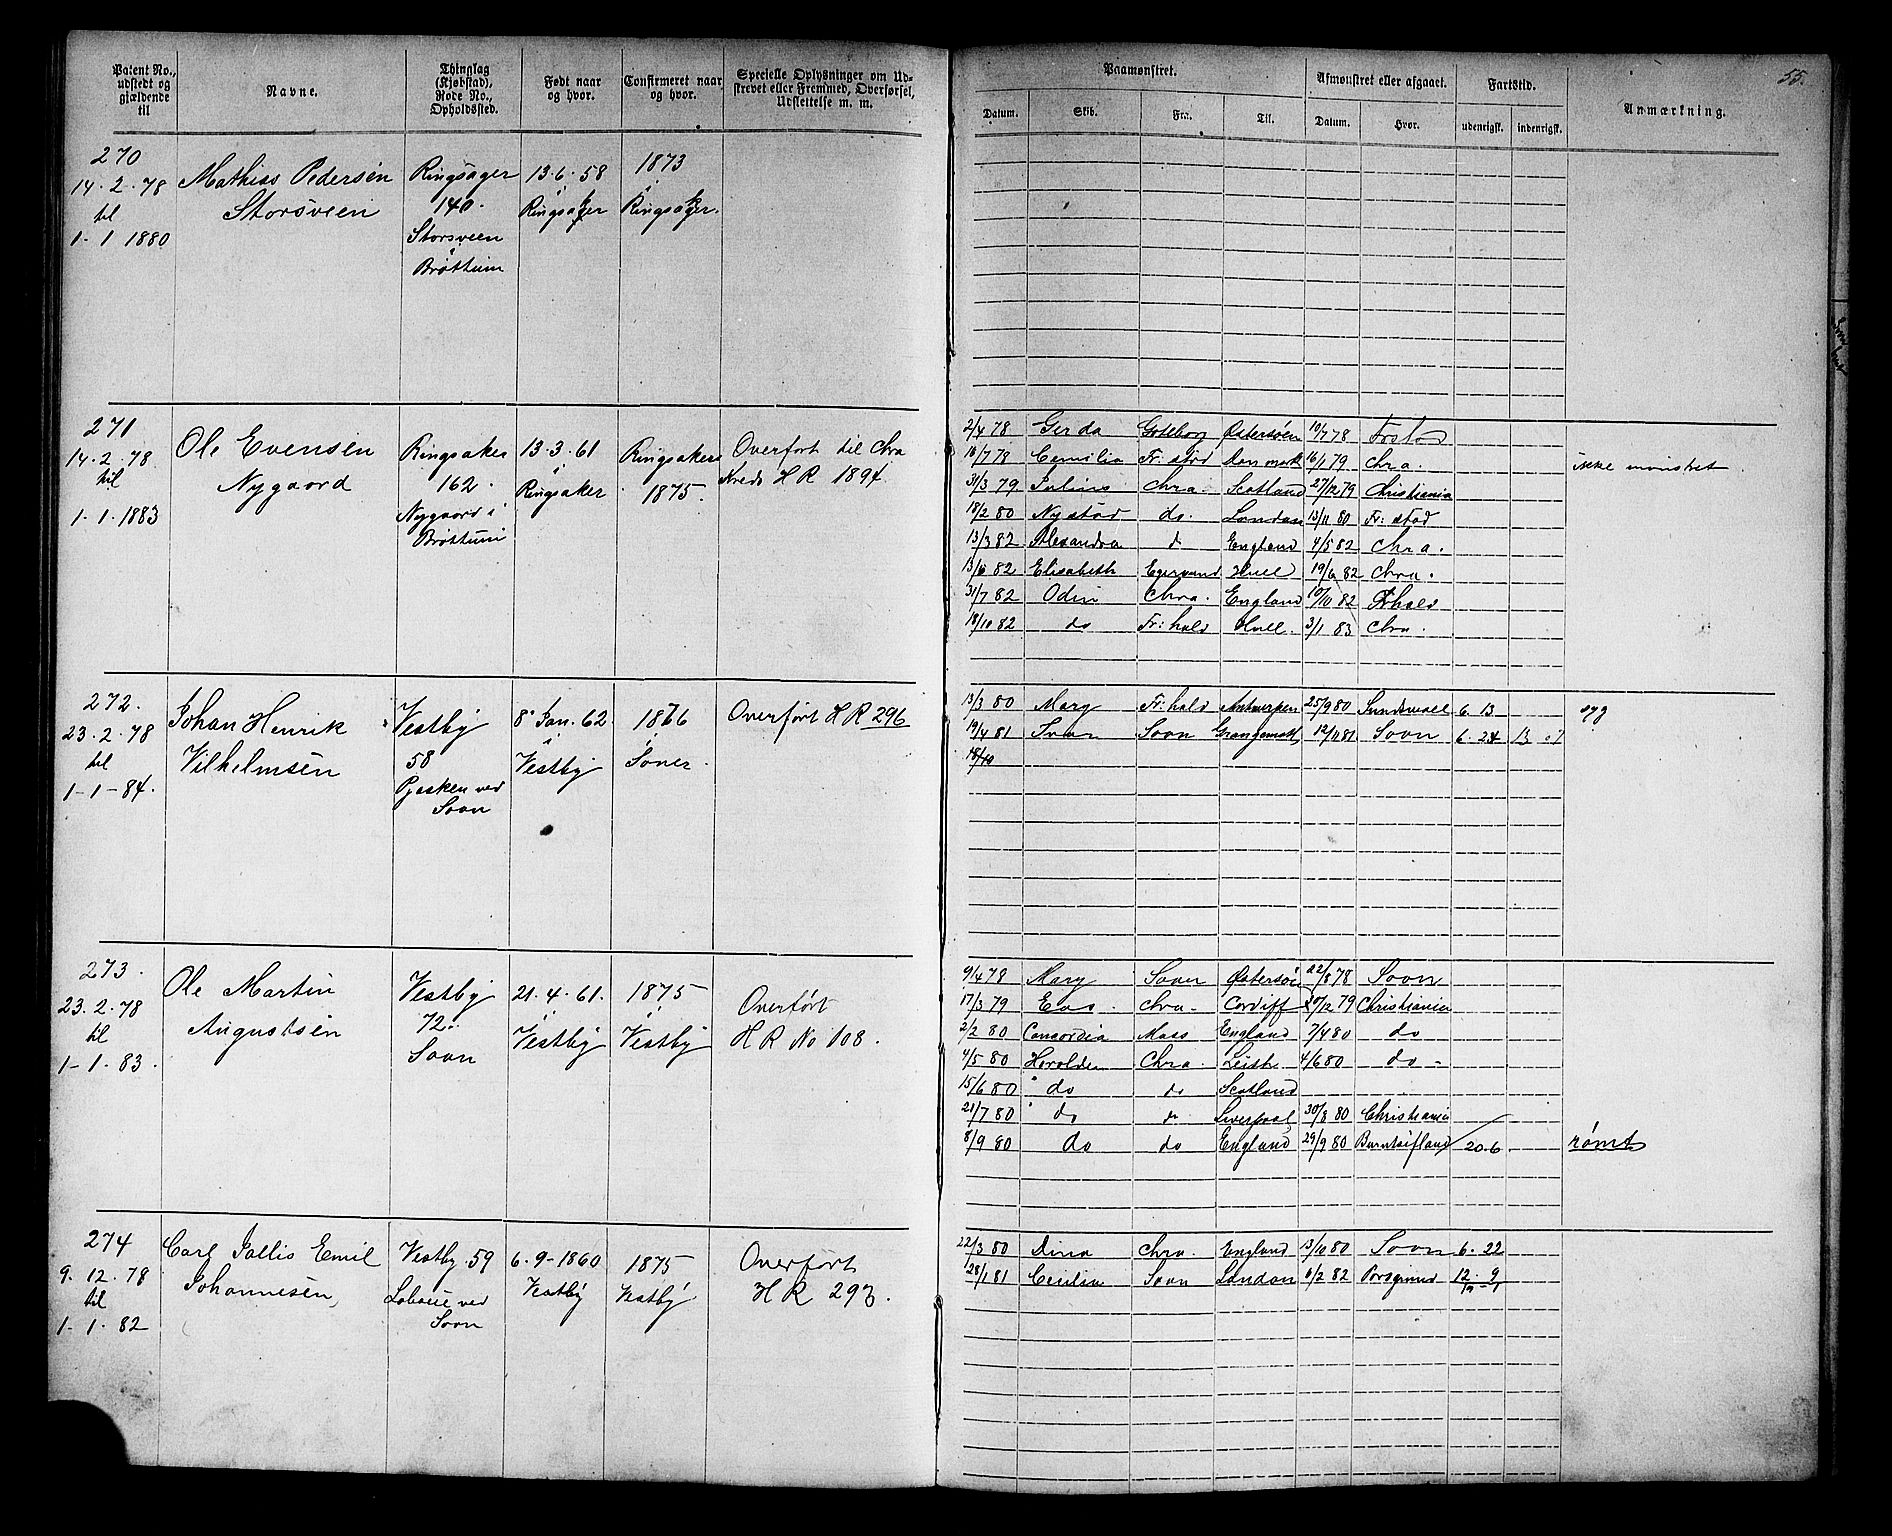 55.
Patent No., udstedt og gjældende til
Navne.
Thinglag (Kjøbstad), Rode No., Opholdssted.
Født naar og hvor.
Confirmeret naar og hvor.
Specielle Oplysninger om Udstrevet eller Fremmed, Overførsel, Udslettelse m. m.
Paamønstret.
Afmønstret eller afgaaet.
Fartstid.
Anmærkning.
Datum. Skib. Fra. Til. Datum. Hvor. udenrigsk. indenrigsk.
270
14.2.78
til
1-1 1880
Mathias Pedersen
Storsveen
Ringsager
140.
Storsveen
i
Brøttum
13.6.58
i
Ringsaker
1873
i
Ringsaker.
271
14.2.78
til
1.1.1883
Ole Evensen
Nygaard
Ringsaker
162.
Nygaard i
Brøttum
13.3.61
i
Ringsaker
Ringsaker
1875.
Overført til Chra
Kreds H R 1894.
2/4 78 Gerda Gøteborg Østersøen 10/7 78 Frstad
16/7 78 Camilia Fr:stad Danmark 16/1 79 Chra. ikke mønstret
31/3 79 Julius Chra. Scotland 27/12 79 Christiania
18/2 80 Nystad do. London 13/11 80 Fr:stad
13/3 82 Alexandra d England 4/5 82 Chra.
13/6 82 Elisabeth Egersund Hull 19/6 82 Chra.
31/7 82 Odin Chra. England 10/10 82 Frhald
18/10 82 do Fr:hald Hull. 3/1 83 Chra.
272.
23.2.78
til
1-1-84.
Johan Henrik
Vilhelmsen
Vestby
58
ved
Soon
8' Jan. 62
i
Vestby
1876
i
Soner.
Overført H R 296
13/3 80 Mary Fr:hald Antwerpen 25/9 80 Sundsvall 6.13
19/4 81 Svan Soon 12/11 81 Soon 6.24 13.07
18/10
273.
23.2.78
til
1-1.83.
Ole Martin
Augustsen
Vestby
72.
Soon
21.4.61.
i
Vestby
1875
i
Vestby
Overført
H R No 108.
9/4 78 Mary Soon Østersøen 22/8 78 Soon
17/3 79 Eos. Chra. Cardiff 20/12 79 Christiania
2/2 80 Concordia Moss England 7/4 80 do
4/5 80 Chra. Leith 4/6 80 do -
15/6 80 do do Scotland
21/7 80 do do Liverpool 30/8 80 Christiania
8/9 80 do do England 29/9 80 Burntisland 20.6 rømt
274
9.12.78
til
1-1.82
Carl Emil
Johannesen,
Vestby 59
ved
Soon
6.9-1860
Vestby
1875
i
Vestby
Overført
H R 293.
22/3 80 Dina Chra. England 13/10 80 Soon 6.22
28/1 81 Cecilia Soon London 6/2 82 Porsgrund 12 9